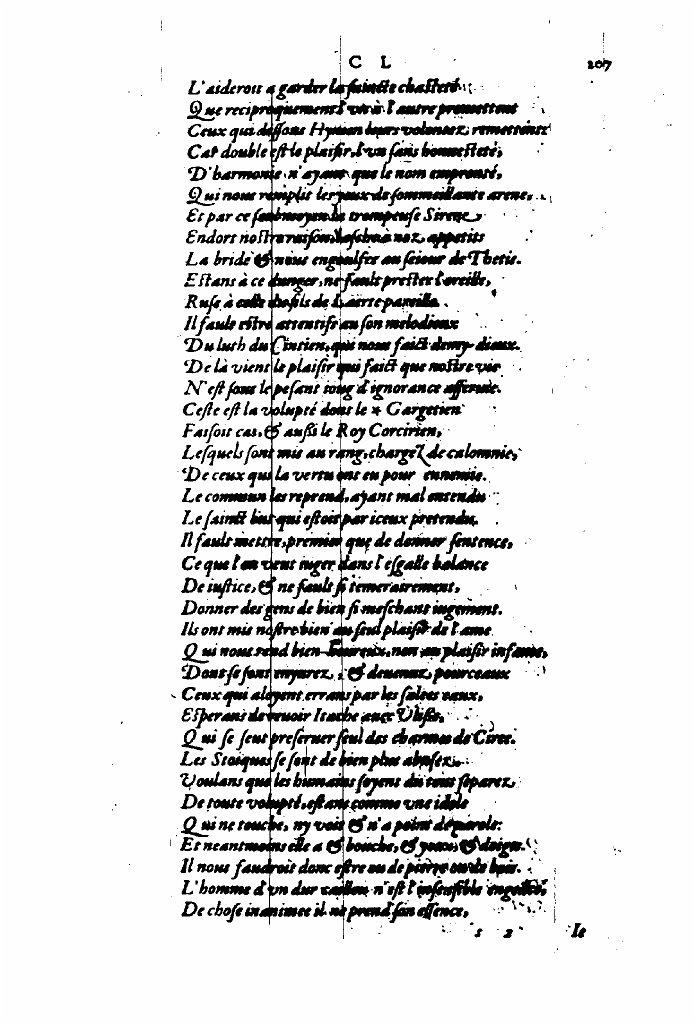 C L 207
L'aideroit a garder la saincte chasteté
Que reciproquement l'un à l'autre promettent
Ceux qui dessous Hymen leurs volontez remettent
Car double est le plaisir, l'un sans honnesteté,
D'harmonie n'ayant que le nom emprunté,
Qui nous remplit les yeux de sommeillante arene,
Et par ce seul moyen la trompeuse Sirene
Endort nostre raison, lasche à noz appetits
La bride & nous engoulfre au seiour de Thetis.
Estans à ce danger, ne fault prester l'oreille,
Ruse à celle du fils de Laërte pareille.
Il fault estre attentifs au son melodieux
Du luth du Cintien, qui nous faict demy-dieux.
De là vient le plaisir qui faict que nostre vie
N'est sous le pesant ioug d'ignorance asseruie.
Ceste est la volupté dont le * Gargetien
Faisoit cas, & aussi le Roy Corcirien,
Lesquels sont mis au rang, chargez de calomnie,
De ceux qui la vertu ont eu pour ennemie.
Le commun les reprend, ayant mal entendu
Le sainct but qui estoit par iceux pretendu.
Il fault mettre, premier que de donner sentence,
Ce que l'on veut iuger dans l'esgalle balance
De iustice, & ne fault si temerairement,
Donner des gens de bien si meschant iugement.
Ils ont mis nostre bien au seul plaisir de l'ame
Qui nous rend bien-heureux, non au plaisir infame,
Dont se sont enyurez, & deuenuz pourceaux
Ceux qui aloyent errans par les salées eaux,
Esperans de reuoir Itache auec Ulisse,
Qui se seut preseruer seul des charmes de Circe.
Les Stoiques se sont de bien plus abusez,
Voulans que les humains soyent du tout separez
De toute volupté, estans comme vne idole
Qui ne touche, ny voit & n'a point de parole:
Et neantmoins elle a & bouche, & yeux, & doigts.
Il nous faudroit donc estre ou de pierre ou de bois.
L'homme d'un dur caillou n'est l'insensible engeance,
De chose inanimee il ne prend son essence,
s 2 Ie